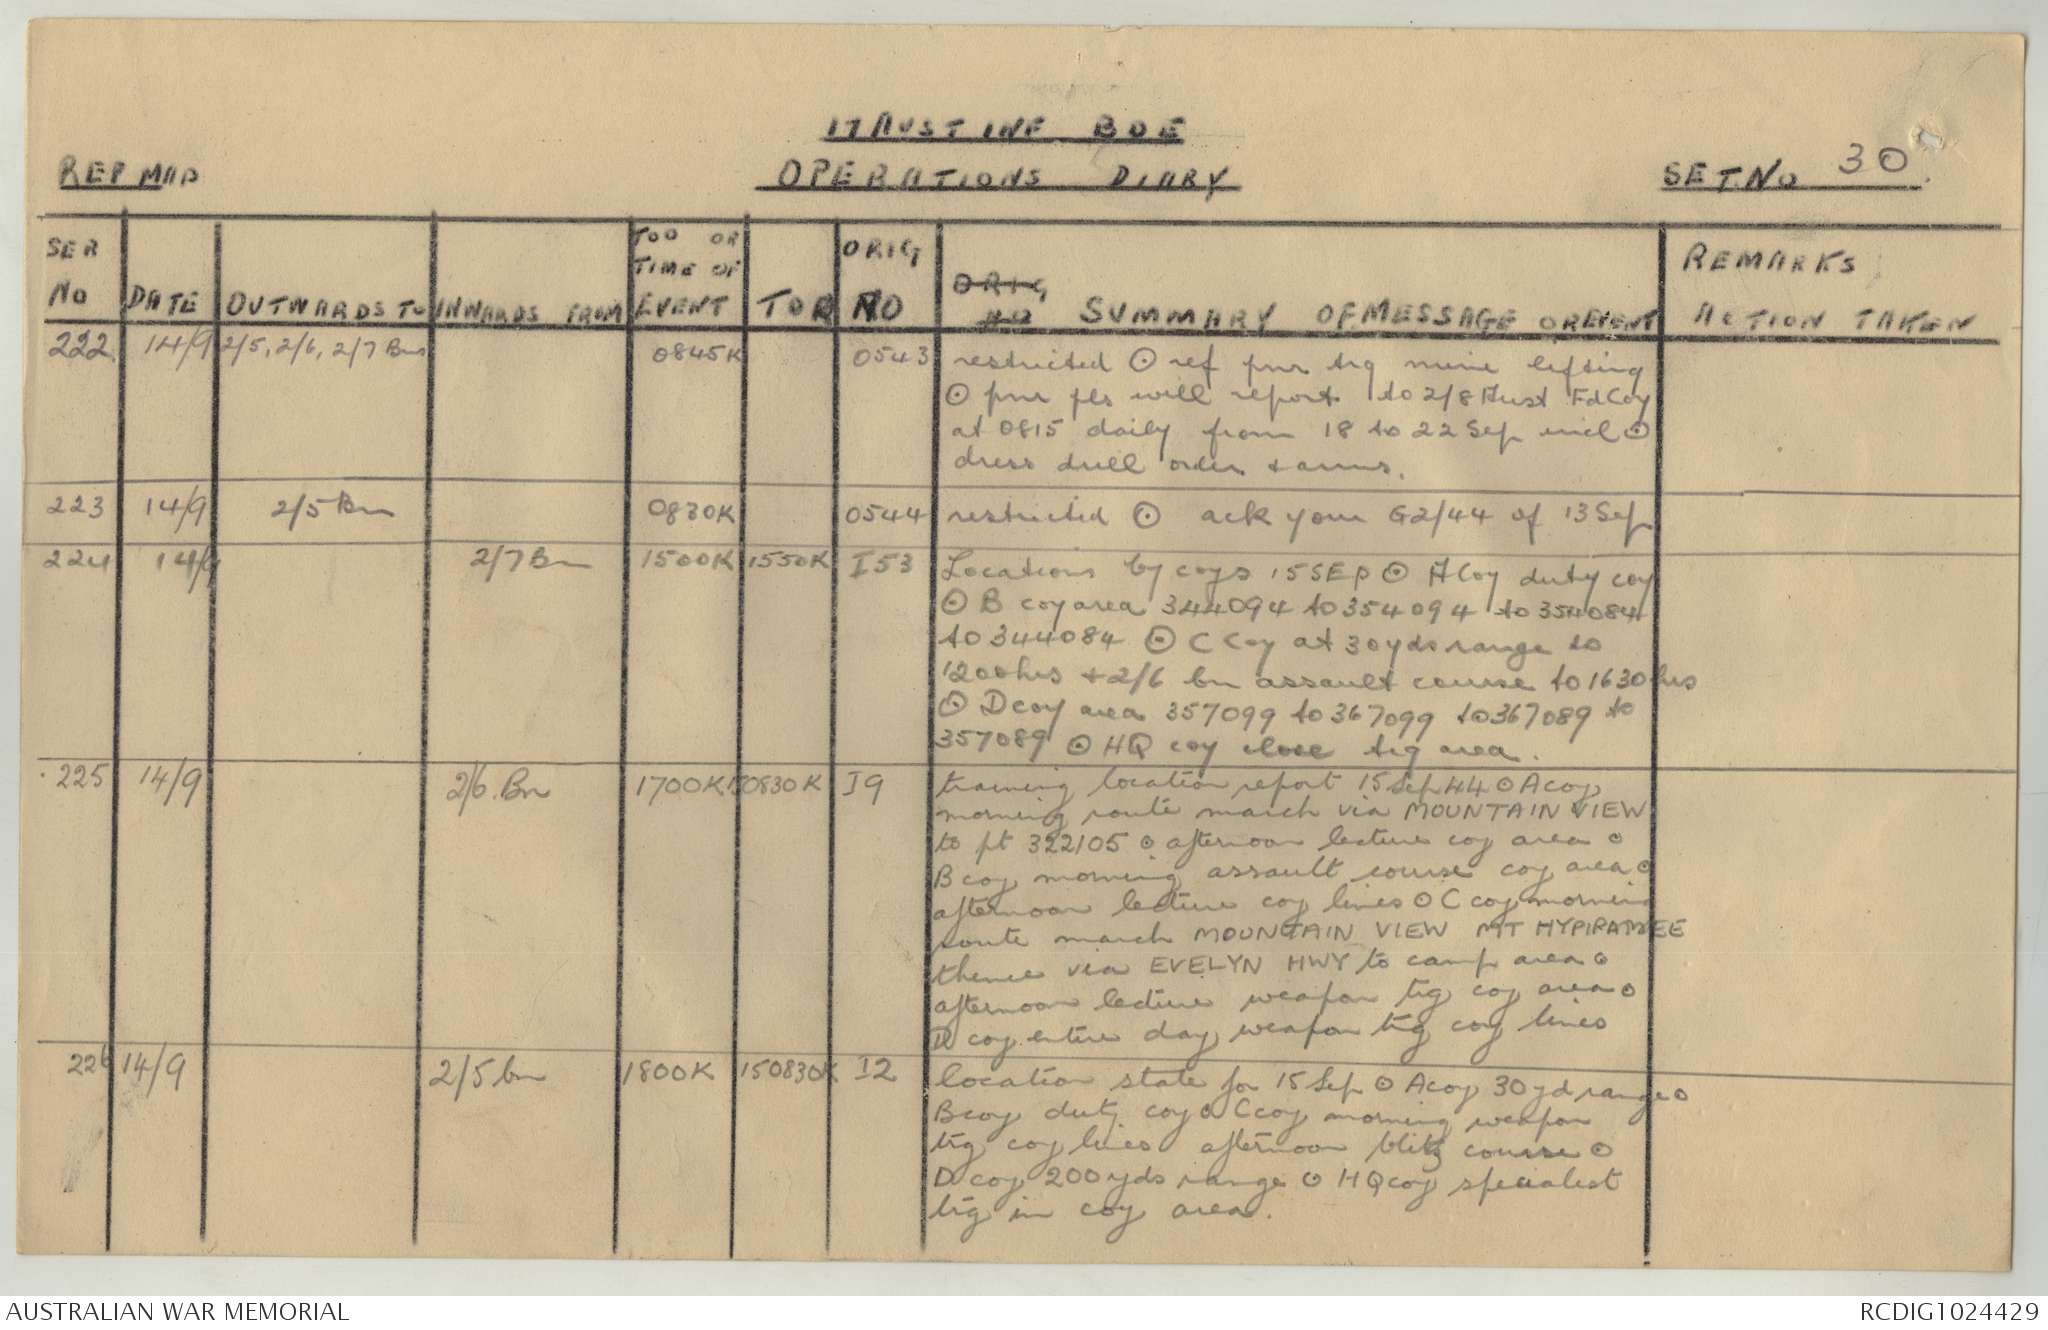 17 AUST INF BDE
REF MAP
OPERATIONS DIARY
SET. No 30.
SER NO
DATE
OUTWARDS TO
INWARDS FROM
TOO OR TIME OF EVENT
TOR
ORIG NO
ORIG NO SUMMARY OF MESSAGE OR EVENT
REMARKS ACTION TAKEN
222 14/9 2/5, 2/6, 2/7 Bns 0845K 0543 restricted ⊙ ref pnr trg mine lifting
⊙ pnr pls will report to 2/8 Aust Fd Coy
at 0815 daily from 18 to 22 Sep incl ⊙
dress drill order + arms.
223 14/9 2/5 Bn 0830K 0544 restricted ⊙ ack your G2/44 of 13 Sep
224 14/9 2/7 Bn 1500K 1550K I53 Locations by coys 15 SEP ⊙ A Coy duty coy
⊙ B coy area 344094 to 354094 to 354084
to 344084 ⊙ C Coy at 30 yds range to
1200hrs + 2/6 bn assault course to 1630 hrs
⊙ D coy area 357099 to 367099 to 367089 to
357089 ⊙ HQ coy close trg area.
225 14/9 2/6. Bn 1700K 150830K I9 training location report 15 Sep 44 ⊙ A coy
morning route march via MOUNTAIN VIEW
to pt 322105 ⊙ afternoon lecture coy area ⊙
B coy morning assault course coy area ⊙
afternoon lecture coy lines ⊙ C coy morning
route march MOUNTAIN VIEW MT HYPIRAMEE
thence via EVELYN HWY to camp area ⊙
afternoon lecture weapon trg coy area ⊙
D coy entire day weapon trg coy lines
226 14/9 2/5 bn 1800K 150830K I2 location state for 15 Sep ⊙ A coy 30 yd range ⊙
B coy duty coy ⊙ C coy morning weapon
trg coy lines afternoon blitz course ⊙
D coy 200 yds range ⊙ HQ coy specialist
trg in coy area.
AUSTRALIAN WAR MEMORIAL
RCDIG1024429